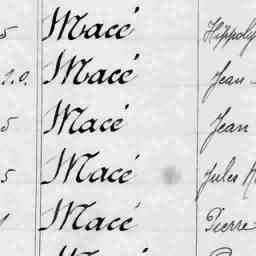 5 Macé Hippoly
1.0. Macé Jean
5 Macé Jean
5 Macé Jules
Macé Pierre
Macé